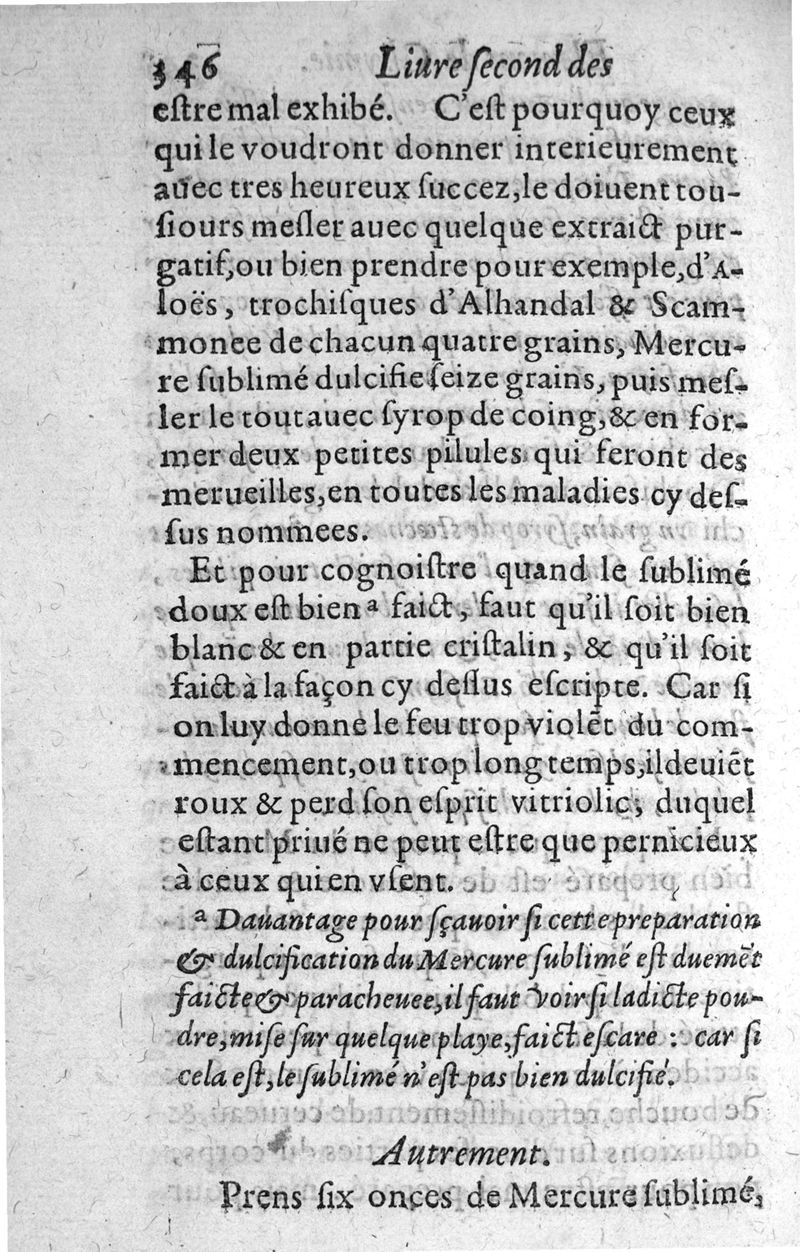 346 Liure ſecond des
eſtre mal exhibé. C'eſt pourquoy ceux
qui le voudront donner interieurement
auec tres heureux ſuccez, le doiuent tou-
ſiours meſler auec quelque extraict pur-
gatif, ou bien prendre pour exemple, d'A-
loës, trochiſques d'Alhandal & Scam-
monee de chacun quatre grains, Mercu-
re ſublimé dulcifie ſeize grains, puis meſ-
ler le tout auec ſyrop de coing, & en for-
mer deux petites pilules qui feront des
merueilles, en toutes les maladies cy deſ-
ſus nommees.
Et pour cognoiſtre quand le ſublimé
doux eſt bien ª faict, faut qu'il ſoit bien
blanc & en partie criſtalin, & qu'il ſoit
faict à la façon cy deſſus eſcripte. Car ſi
on luy donne le feu trop violēt du com-
mencement, ou trop long temps, il deuiēt
roux & perd ſon eſprit vitriolic, duquel
eſtant priué ne peut eſtre que pernicieux
à ceux qui en vſent.
ª Dauantage pour ſçauoir ſi cette preparation
& dulcification du Mercure ſublimé eſt duemēt
faicte & paracheuee, il faut voir ſi ladicte pou-
dre, miſe ſur quelque playe, faict eſcare : car ſi
cela eſt, le ſublimé n'eſt pas bien dulcifié.
Autrement.
Prens ſix onces de Mercure ſublimé,